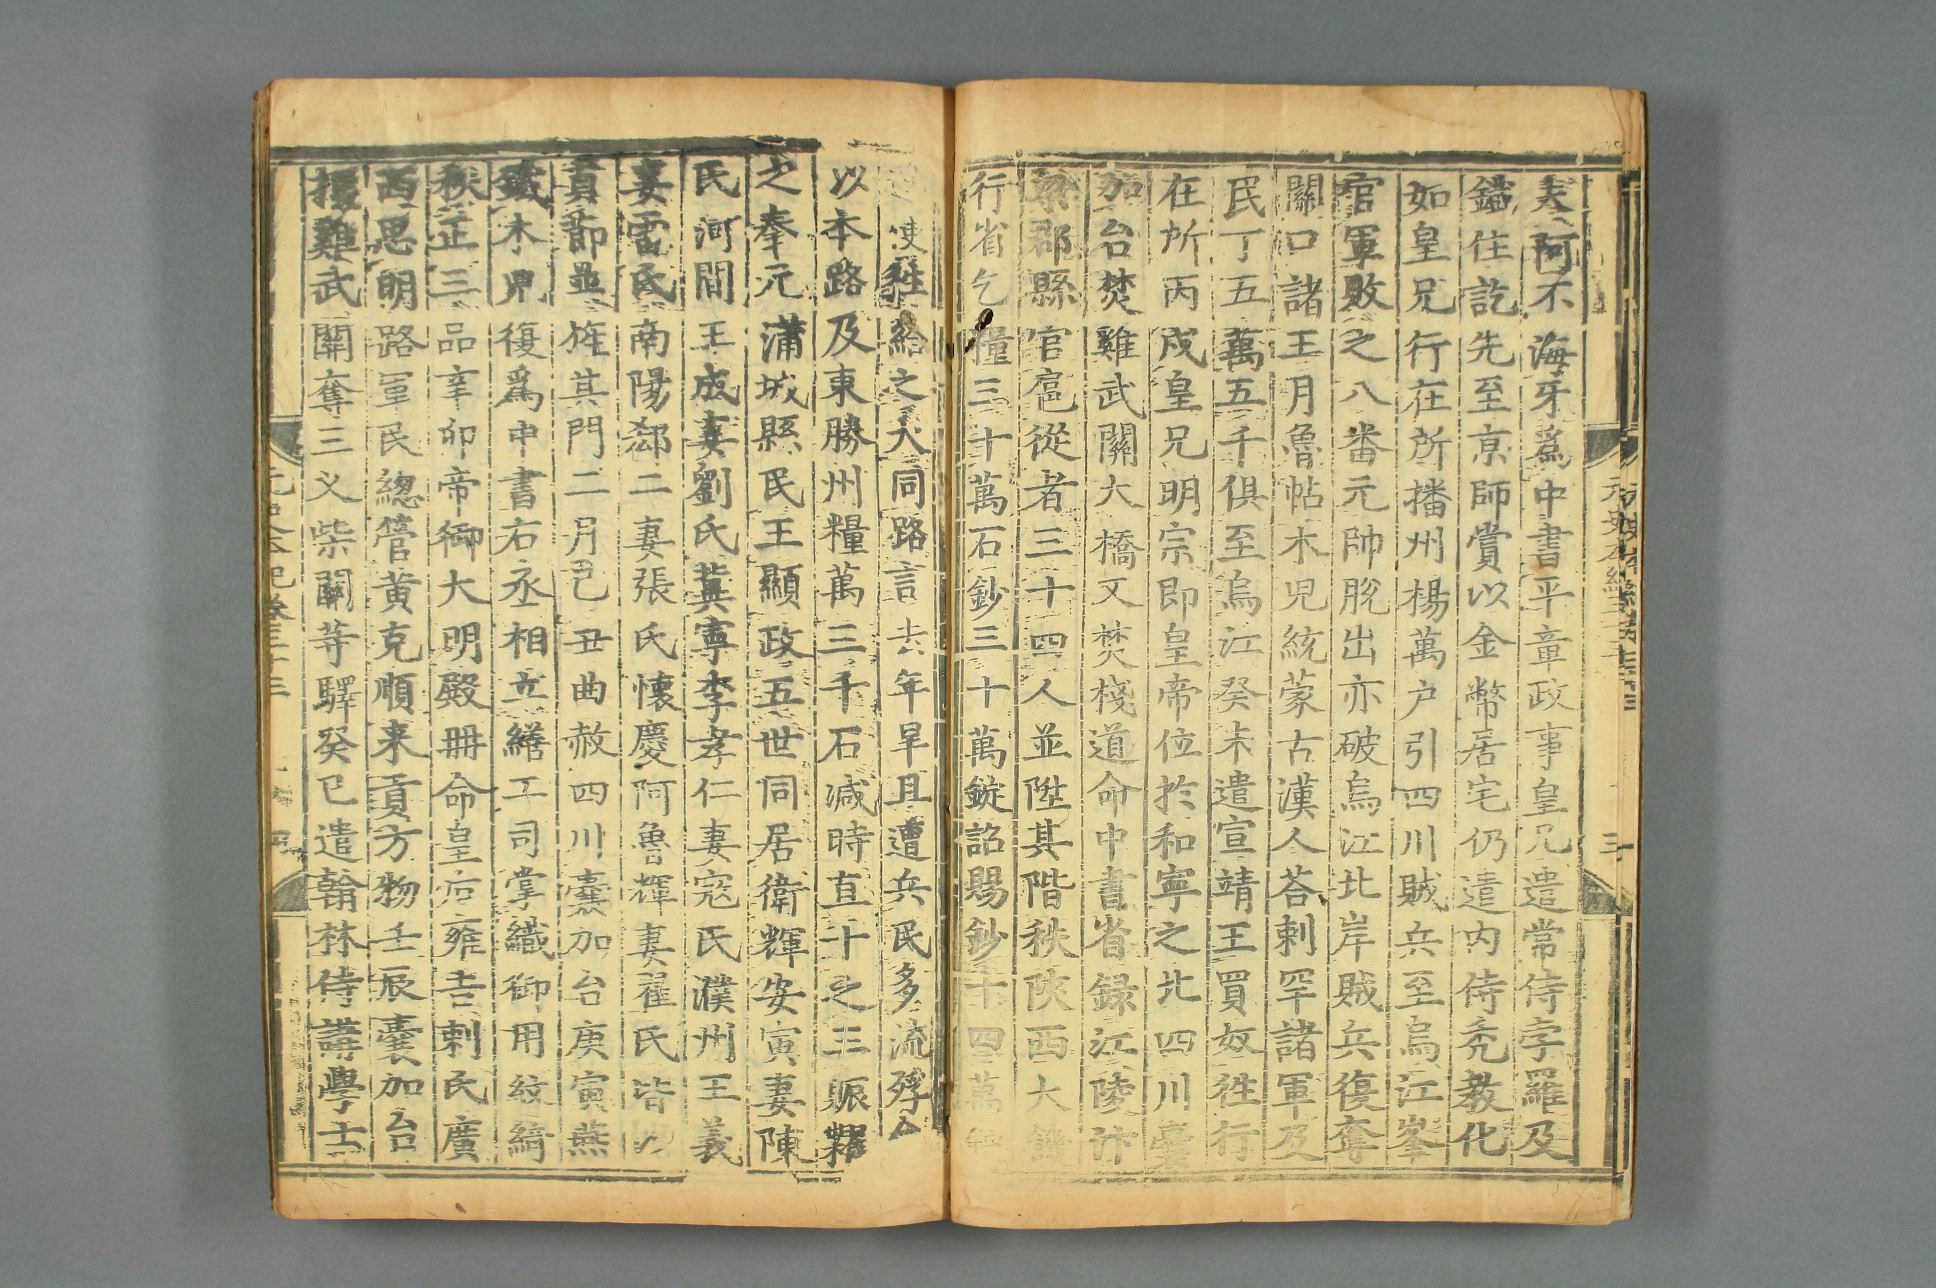 夫阿不海牙爲中書平章政事皇兄遣常侍孛羅及
鐵住訖先至京師賞以金幣居宅仍遣內侍禿教化
如皇兄行在所播州楊萬户引四川賊兵至烏江峯
官軍敗之八番元帥脫出亦破烏江北岸賊兵復奪
關口諸王月魯帖木兒統蒙古漢人荅剌罕諸軍及
民丁五萬五千俱至烏江癸未遣宣靖王買奴徃行
在所丙戌皇兄明宗即皇帝位扵和寧之北四川囊
加台焚雞武關大橋又焚棧道命中書省録江陵汴
梁郡縣官扈從者三十四人並陞其階秩陝西大饑
行省乞糧三十萬石鈔三十萬錠詔賜鈔十四萬
使徃給之大同路言去年旱且遭兵民多流殍命
以本路及東勝州糧萬三千石減時直十之三賑糶
之奉元蒲城縣民王顯政五世同居衛輝安寅妻陳
民河間王成妻劉氏冀寧李孝仁妻寇氏濮州王義
妻雷氏南陽郄二妻張氏懷慶阿魯輝妻翟氏皆以
貞節並旌其門二月己丑曲赦四川囊加台庚寅燕
鐵木兒復爲中書右丞相立繕工司掌織御用紋綺
秩正三品辛卯帝御大明殿冊命皇后雍吉剌氏廣
西思明路軍民總管黃克順来貢方物壬辰囊加台
援雞武關奪三义柴關等驛癸巳遣翰林侍講學士
元史本紀卷三十三
三
元史本紀卷三十三
四